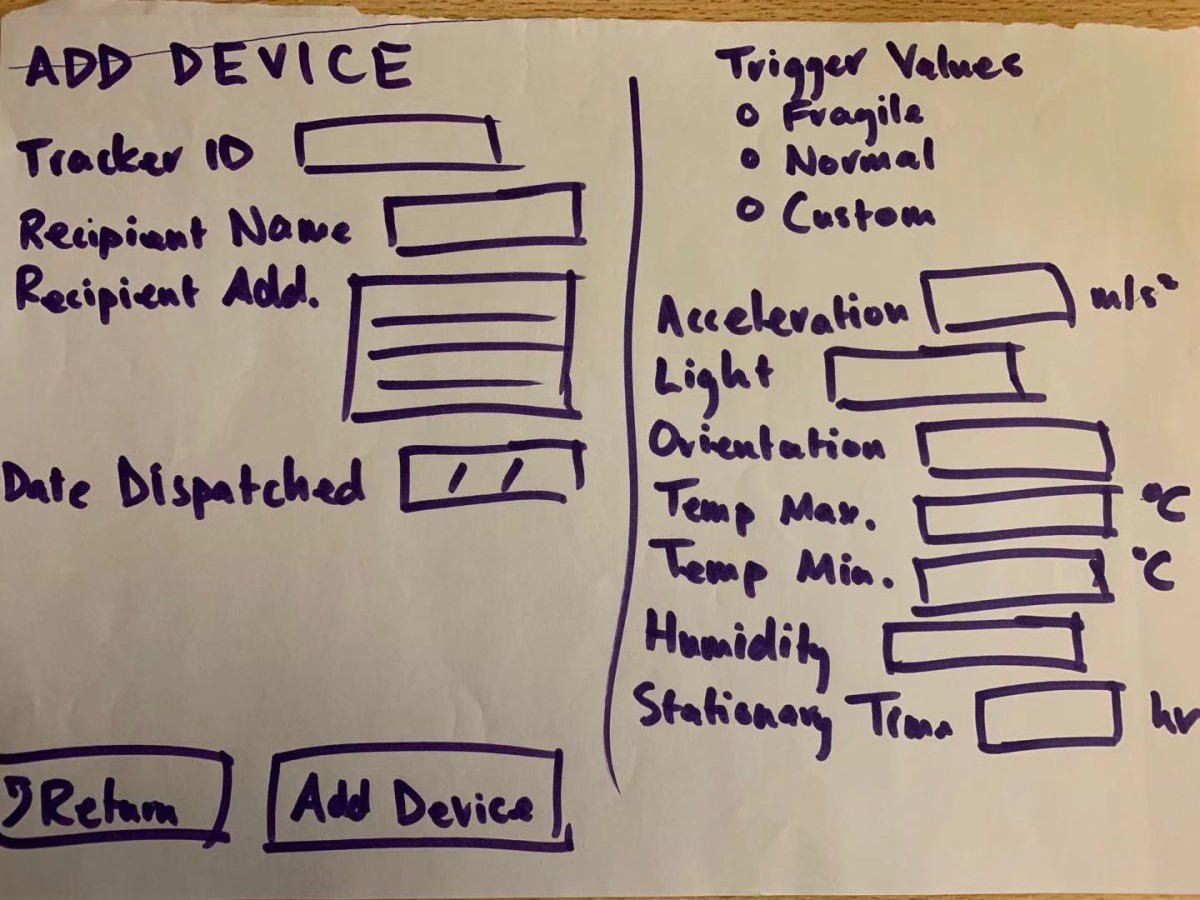 ADD DEVICE
Tracker ID
Recipient Name
Recipient Add.
Date Dispatched / /
Return
Add Device
Trigger Values
Fragile
Normal
Custom
Acceleration m/s²
Light
Orientation
Temp Max. °C
Temp Min. °C
Humidity
Stationary Time hr